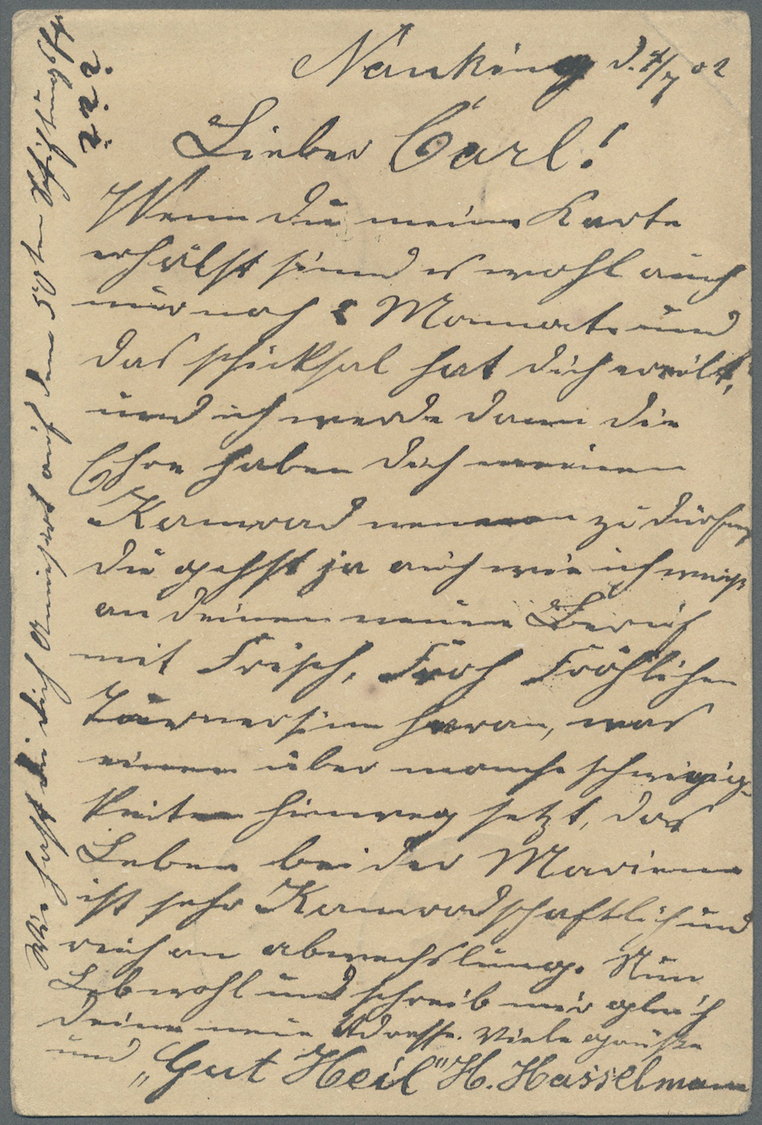 Nanking d. 4/7 02
Lieber Carl!
Wenn du meine Karte
erhälst sind es wohl auch
nur noch 2 Monnate und
das schicksal hat dich ereilt,
und ich werde dann die
Ehre haben dich meinen
Kamerad nennen zu dürfen
du gehst ja auch wie ich weiß
an deinen neuen Beruf
mit Frisch, Froh Fröhlichen
Turnersinn heran, was
einen über manche schwirig-
keiten hinweg setzt, das
Leben bei der Marine
ist sehr Kamradschaftlich und
reich an abwechslung. Nun
Lebwohl und schreib mir gleich
deine neue Adresse. Viele grüße
und „Gut Heil" H. Hasselmann
Wie hast du dich Amüsirt auf dem 50ten Stiftungsfst
???